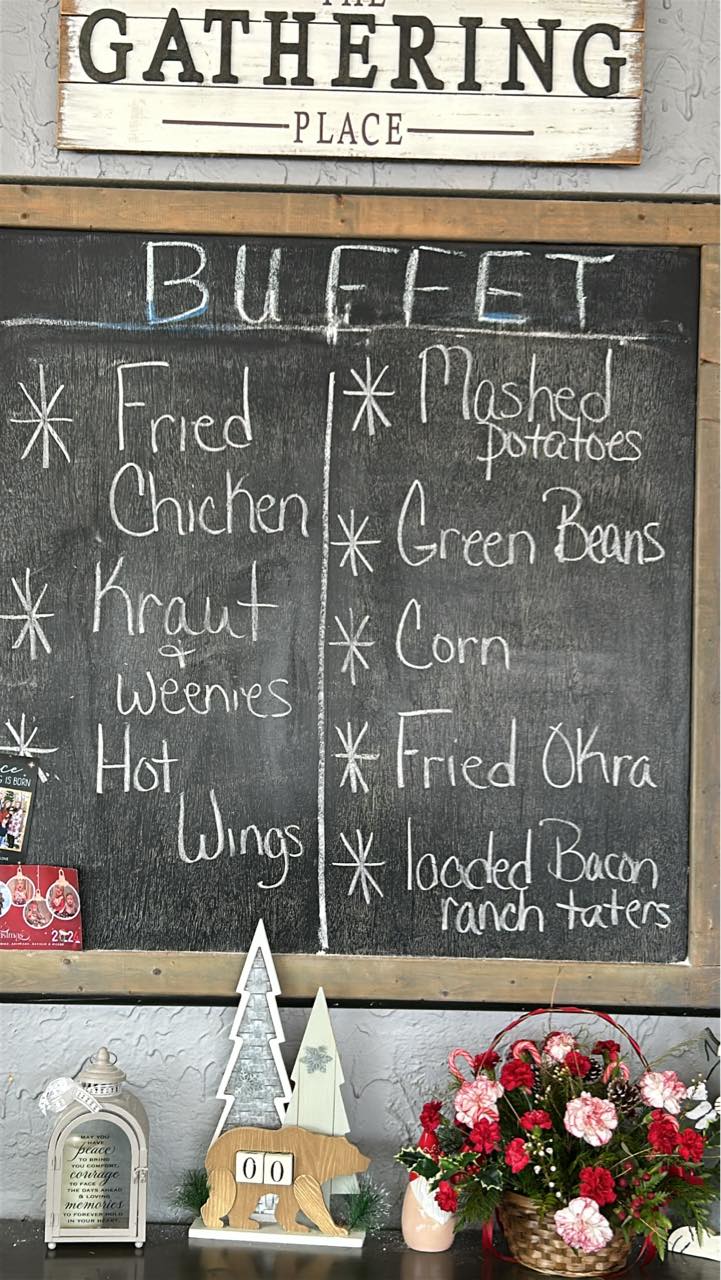 THE
GATHERING
PLACE
BUFFET
* Fried
Chicken
* Kraut
&
Weenies
* Hot
Wings
* Mashed
potatoes
* Green Beans
* Corn
* Fried Okra
* loaded Bacon
ranch taters
IS BORN
MAY YOU
HAVE
peace
TO BRING
YOU COMFORT,
courage
TO FACE
THE DAYS AHEAD
& LOVING
memories
TO FOREVER HOLD
IN YOUR HEART.
00